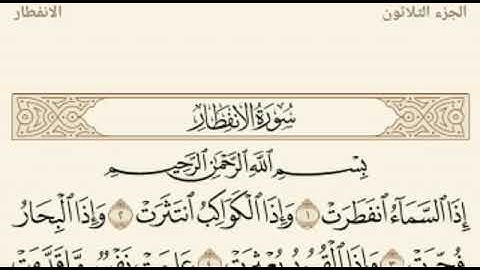 الجزء الثلاثون
الانفطار
سُورَةُ الانفِطَارِ
بِسْمِ اللَّهِ الرَّحْمَٰنِ الرَّحِيمِ
إِذَا السَّمَاءُ انفَطَرَتْ ١ وَإِذَا الْكَوَاكِبُ انتَثَرَتْ ٢ وَإِذَا الْبِحَارُ
فُجِّرَتْ ٣ وَإِذَا الْقُبُورُ بُعْثِرَتْ ٤ عَلِمَتْ نَفْسٌ مَّا قَدَّمَتْ